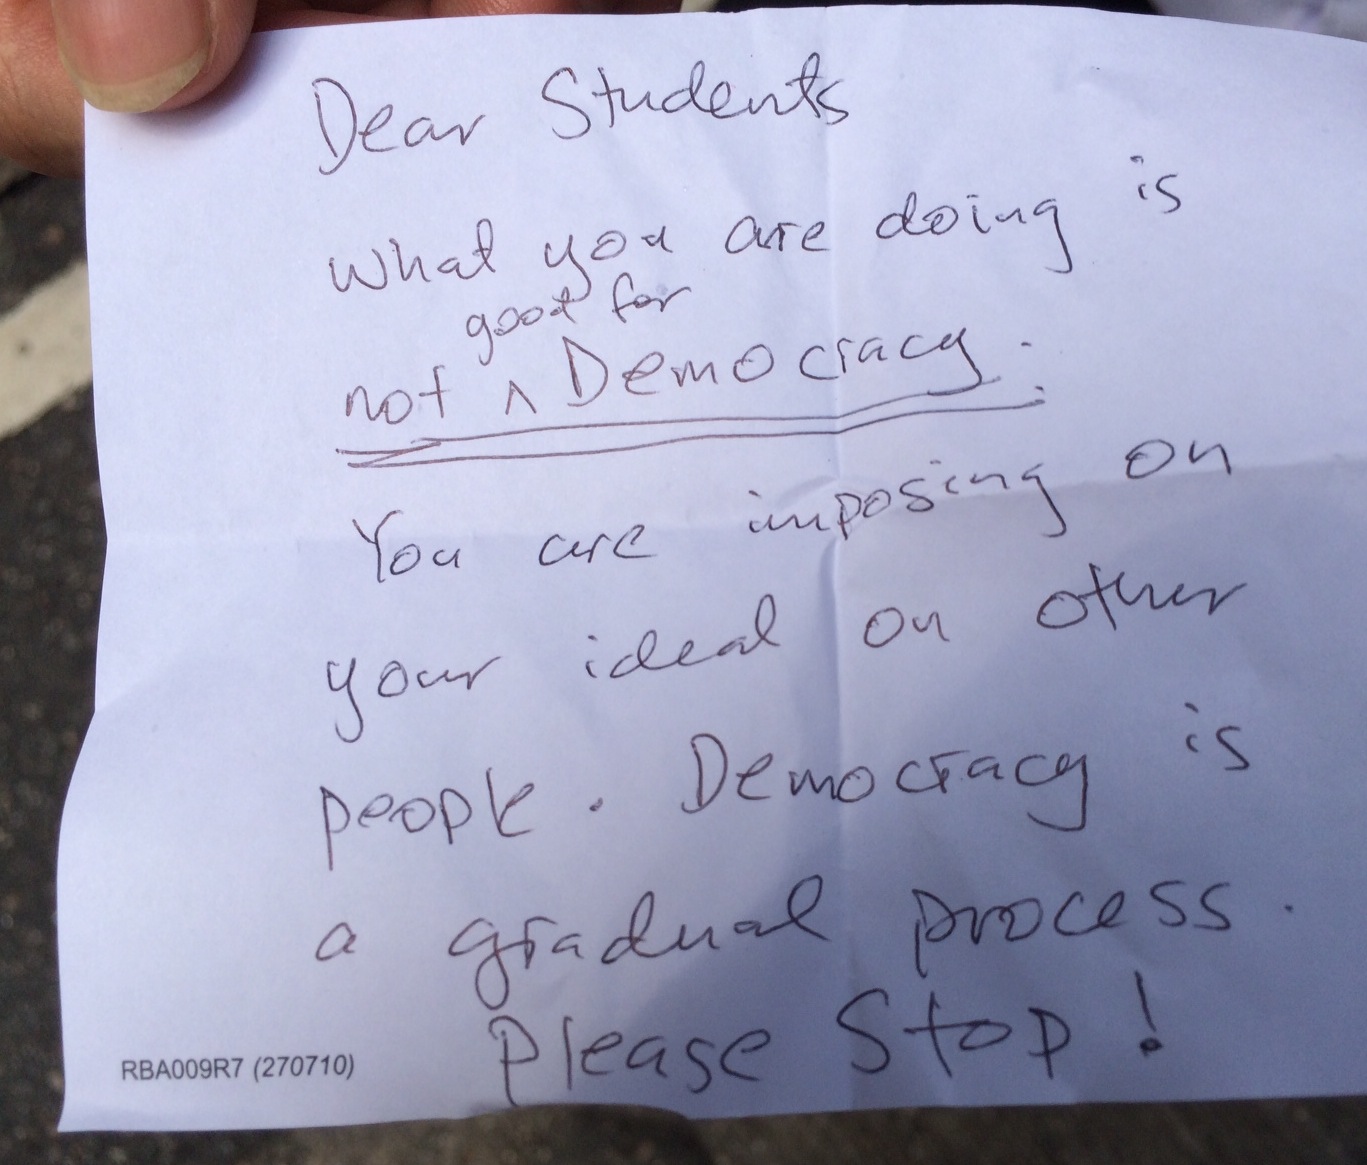 Dear Students
What you are doing is
good for
not ^ Democracy.
You are imposing on
your ideal on other
people. Democracy is
a gradual process.
Please Stop!
RBA009R7 (270710)